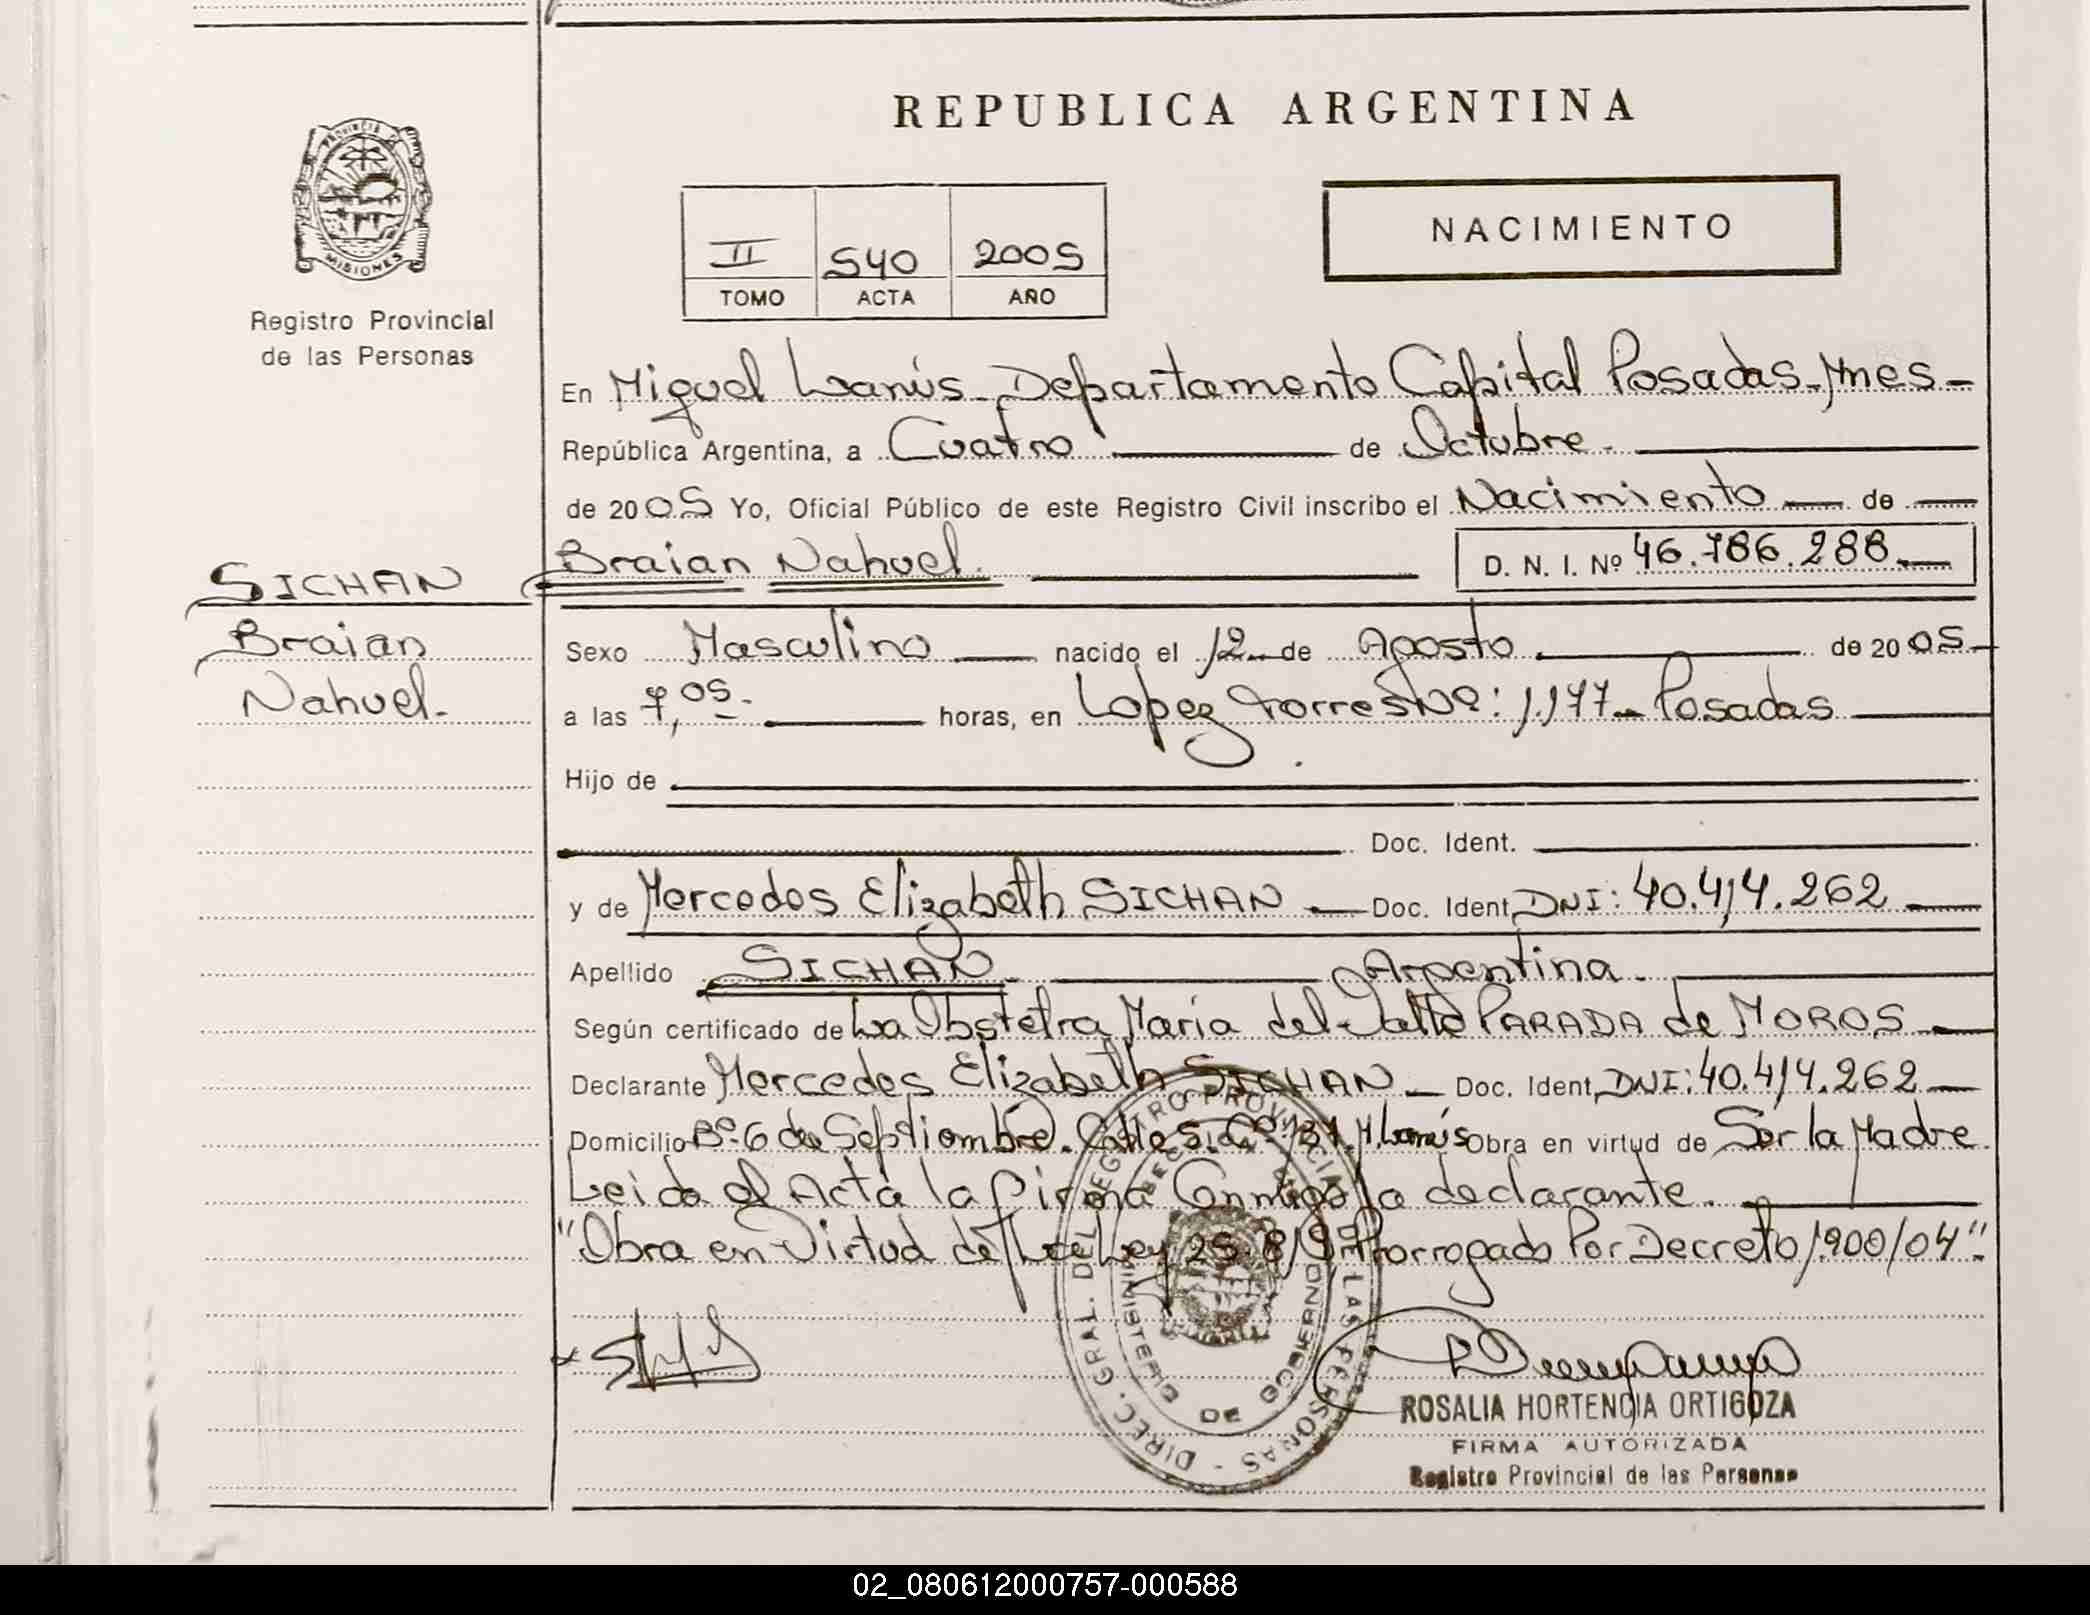 REPUBLICA ARGENTINA
PROVINCIA DE
MISIONES
Registro Provincial
de las Personas
II 540 2005
TOMO ACTA AÑO
NACIMIENTO
En Miguel Lanús - Departamento Capital Posadas - Mnes -
República Argentina, a Cuatro de Octubre.
de 2005 Yo, Oficial Público de este Registro Civil inscribo el Nacimiento de
SICHAN
Braian Nahuel.
D. N. I. Nº 46.786.288.
Braian
Nahuel.
Sexo Masculino nacido el 12 de Agosto de 2005
a las 7,05 horas, en Lopez Torres Nº: 1.177 - Posadas
Hijo de
Doc. Ident.
y de Mercedes Elizabeth SICHAN Doc. Ident. DNI: 40.414.262
Apellido SICHAN Argentina.
Según certificado de La Obstetra María del Valle PARADA de MOROS
Declarante Mercedes Elizabeth SICHAN Doc. Ident. DNI: 40.414.262
Domicilio Bº. 6 de Septiembre. Calle S. Cº 137. M. Lanús Obra en virtud de Ser la Madre.
Leida el Acta la firma Conmigo la declarante.
"Obra en Virtud de Ley 25.819 Prorrogado Por Decreto 1.900/04".
DIREC. GRAL. DEL REGISTRO PROVINCIAL DE LAS PERSONAS
MINISTERIO DE GOBIERNO
ROSALIA HORTENCIA ORTIGOZA
FIRMA AUTORIZADA
Registro Provincial de las Personas
02_080612000757-000588